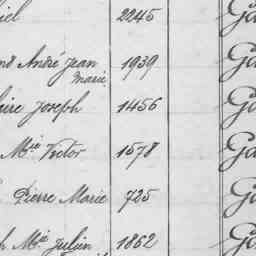 iel 2245 Ga
André Jean 1939 Ga
Marie
ire Joseph 1456 Ga
Mie Victor 1578 Ga
Pierre Marie 725 Ga
h Mie Julien 1862 Ga